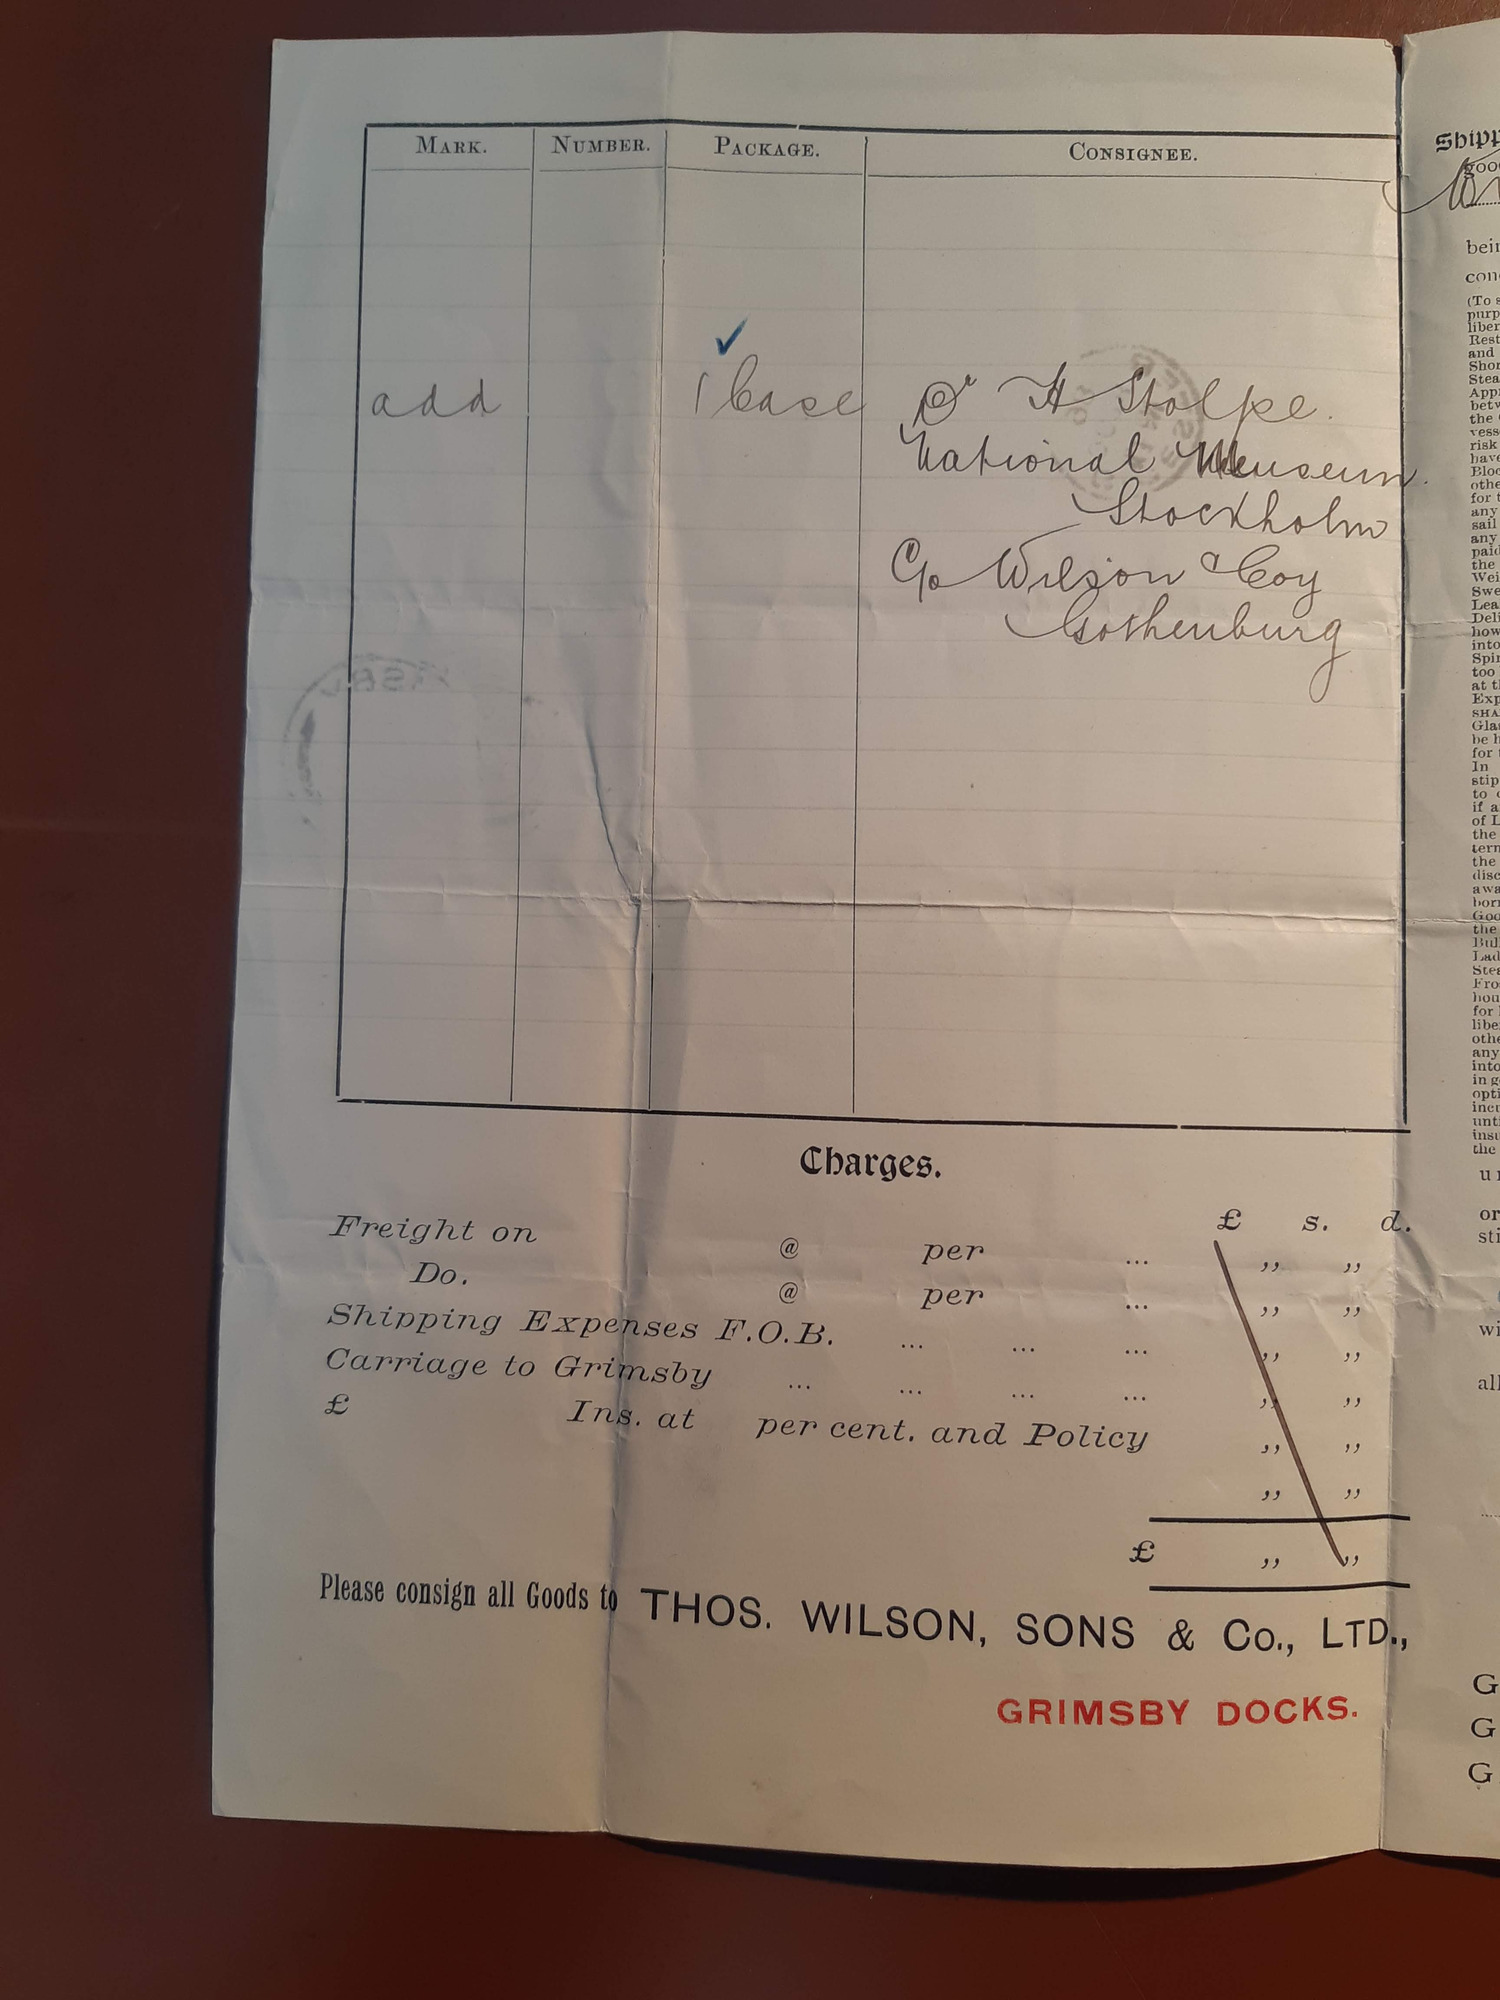 MARK. NUMBER. PACKAGE. CONSIGNEE.
add 1 Case Dr H Stolpe.
National Museum.
Stockholm
C/o Wilson & Coy
Gothenburg
Charges.
£ s. d.
Freight on @ per ... ,, ,,
Do. @ per ... ,, ,,
Shipping Expenses F.O.B. ... ... ... ,, ,,
Carriage to Grimsby ... ... ... ... ,, ,,
£ Ins. at per cent. and Policy ,, ,,
,, ,,
£ ,, ,,
Please consign all Goods to THOS. WILSON, SONS & Co., LTD.,
GRIMSBY DOCKS.
Shipp
goo
bein
con
(To s
purp
liber
Rest
and
Shor
Stea
App
betw
the
vess
risk
have
Bloc
othe
for t
any
sail
any
paid
the
Wei
Swe
Lea
Deli
how
into
Spir
too
at th
Exp
SHA
Gla
be h
for t
In
stip
to
if a
of L
the
tern
the
disc
awa
born
Goo
the
Bul
Lad
Stea
Fro
hou
for
libe
othe
any
into
in g
opti
incu
unt
insu
the
u
or
sti
wi
all
G
G
G